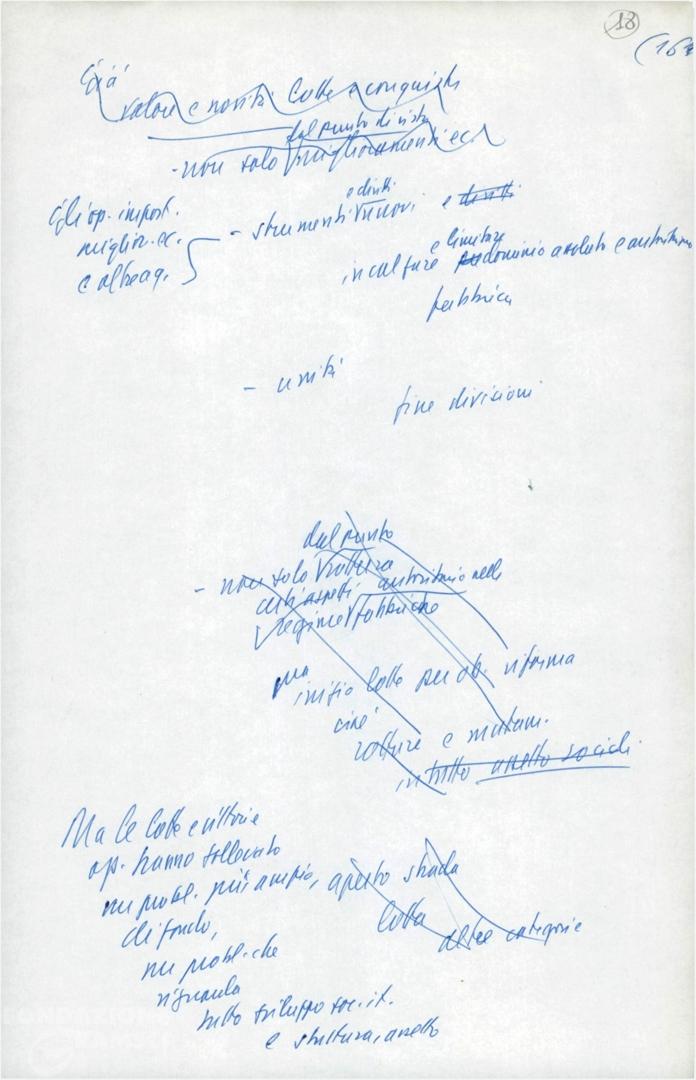 18
(16
Già
valore e novità lotte e conquiste
dal punto di vista
- non solo miglioramenti ec.
Gli op. import.
miglior. ec.
e altre ag.
e diritti
- strumenti nuovi e diritti
e limitare
intaccare dominio assoluto e autoritario
fabbrica
- unità
fine divisioni
dal punto
- non solo rottura
certi aspetti autoritario nelle
regime fabbriche
ma
inizio lotte per ob. riforma
cioè
rotture e mutam.
in tutto assetto sociale
Ma le lotte e vittorie
op. hanno sollevato
un probl. più ampio, aperto strada
di fondo, lotta altre categorie
un probl. che
riguarda
tutto sviluppo soc. it.
e struttura, assetto